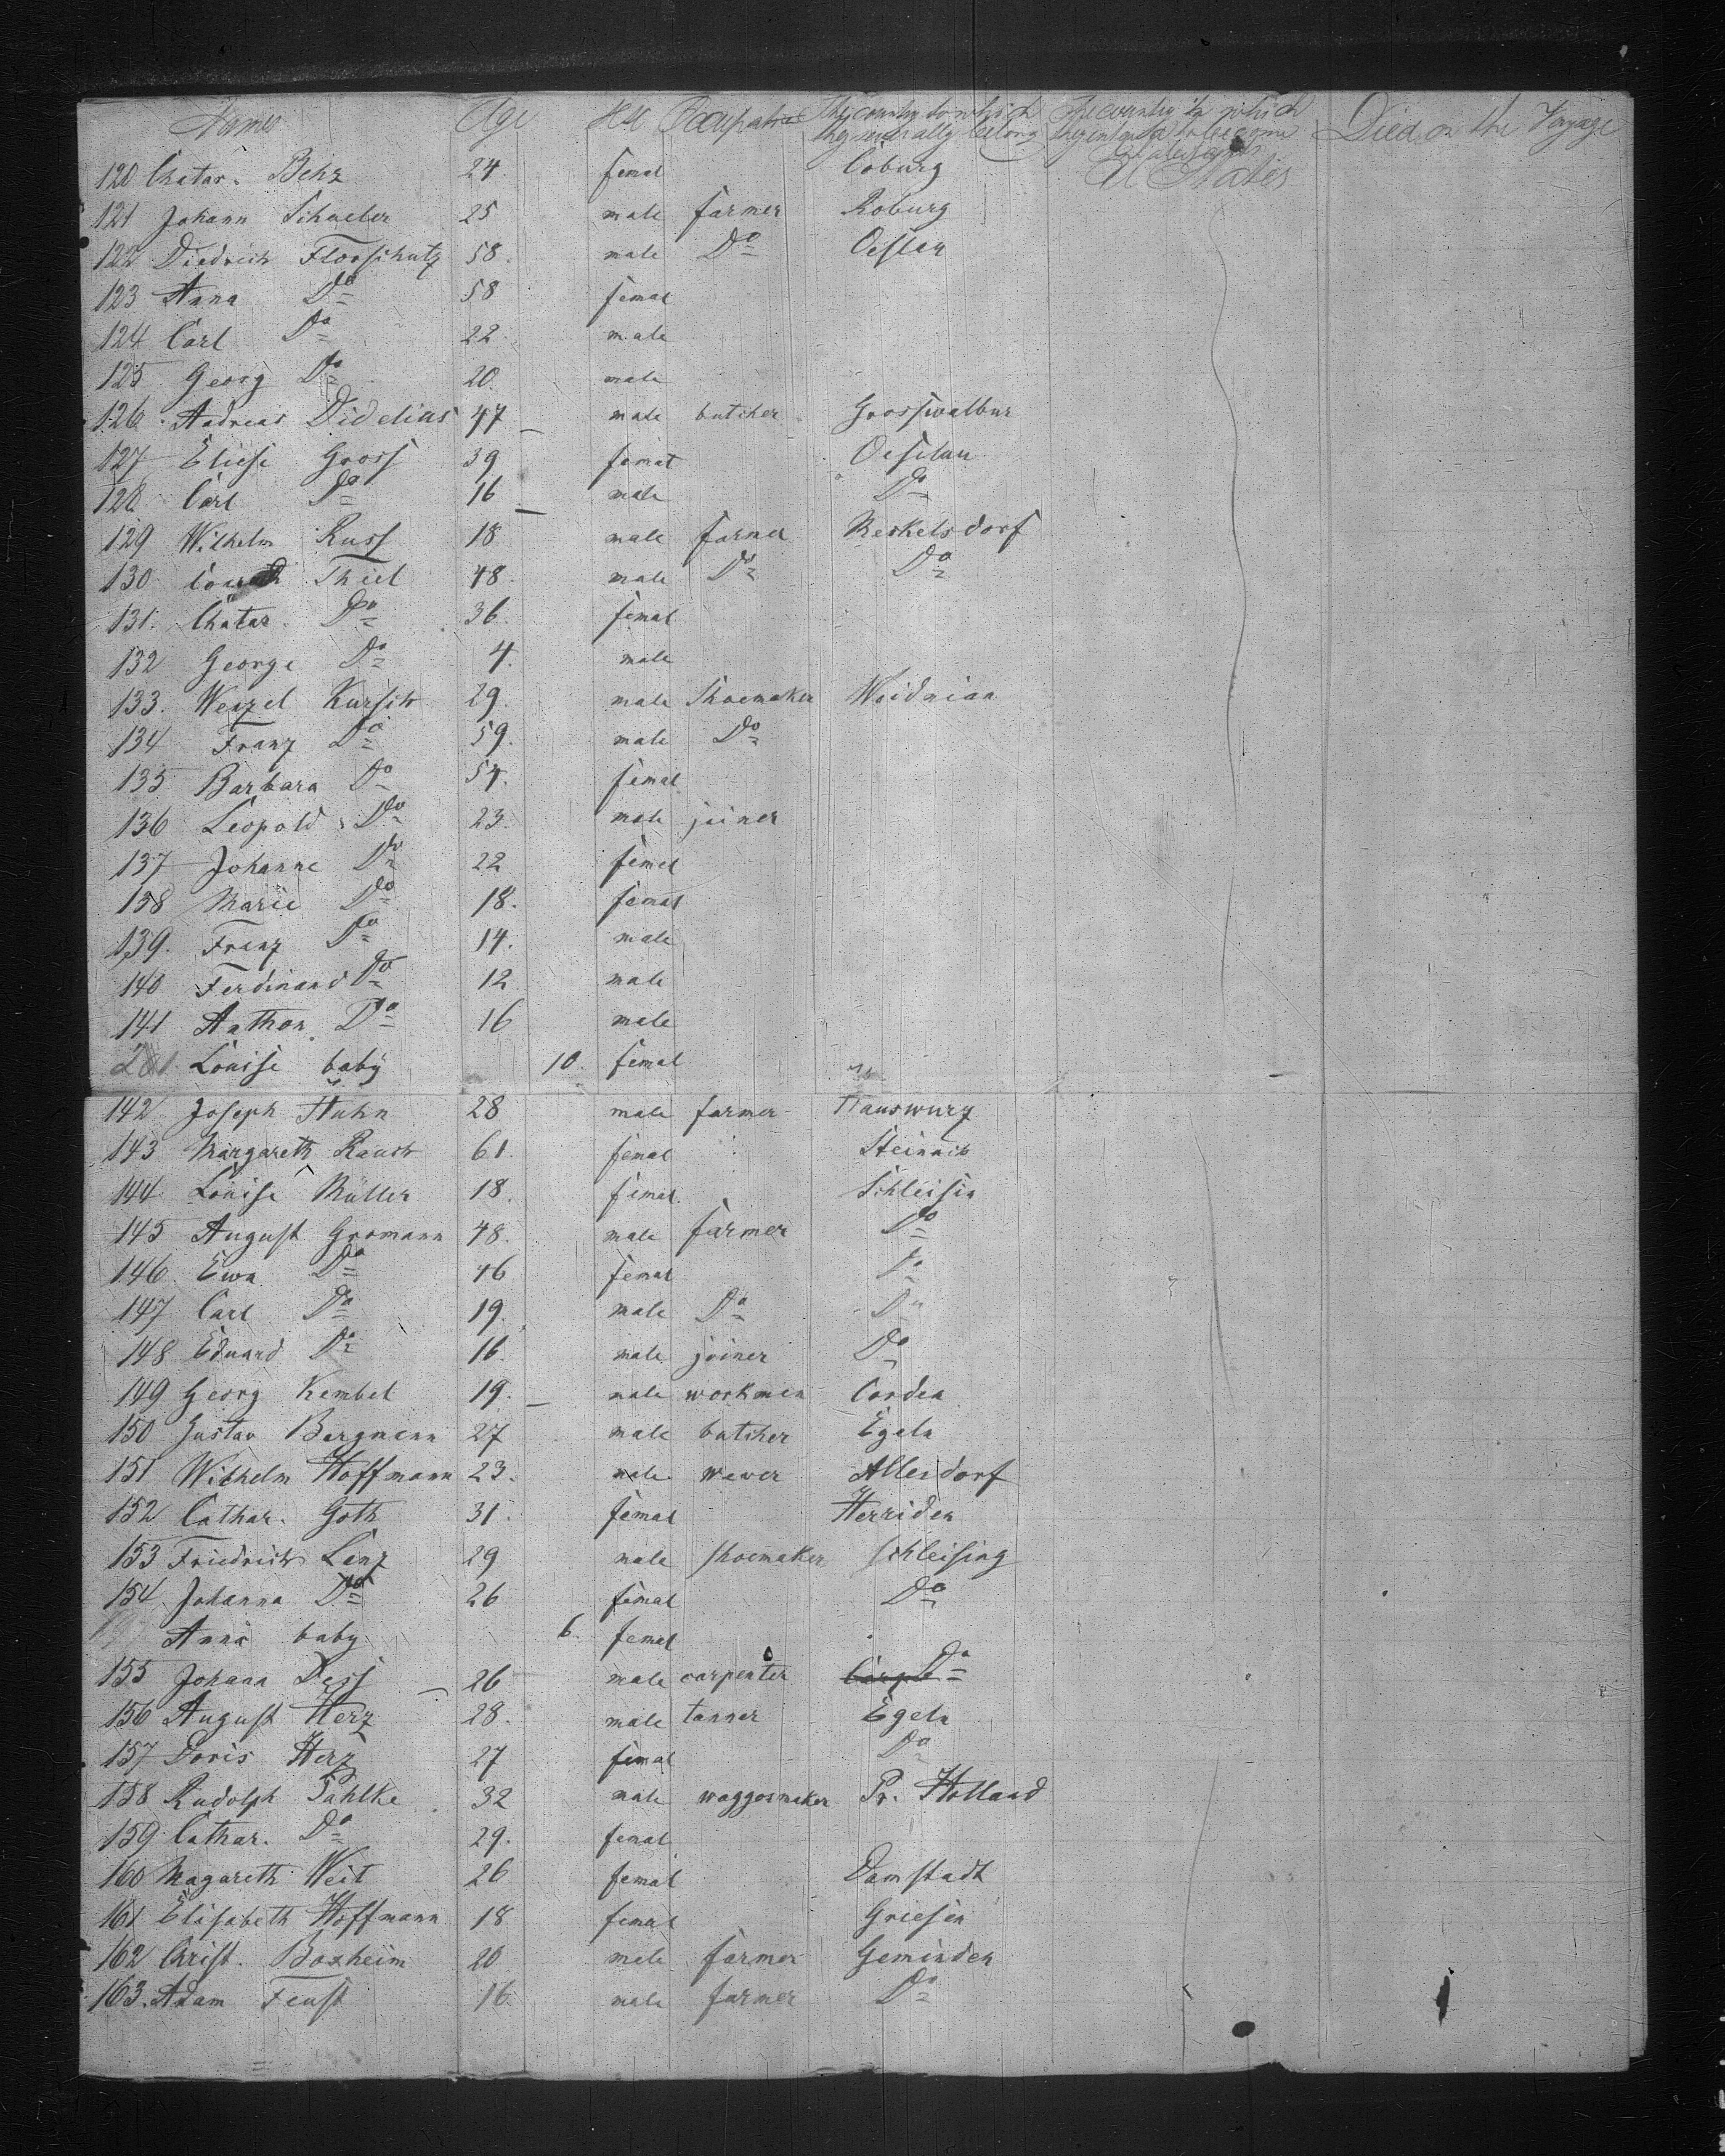 Names Age Sex Occupation The country to which they severally belong The country in which they intend to become inhabitants Died on the Voyage
120 Chatar. Behz 24. femal Coburg U States
121 Johann Schueler 25 male farmer Koburg
122 Diedrich Florschutz 58. male Do Oeslau
123 Anna Do 58 femal
124 Carl Do 22. male
125 Georg Do 20. male
126. Andreas Didelius 47 male butcher Grosswalbur
127 Eliese Gross 39 femal Oeslau
128 Carl Do 16 male Do
129 Wilhelm Russ 18 male farmer Meskelsdorf
130 Thiel 48. male Do Do
131. Chatar. Do 36. femal
132 George Do 4. male
133. Wenzel Kursch 29. male Shoemaker
134 Franz Do 59. male Do
135 Barbara Do 54. femal
136 Leopold Do 23. male joiner
137 Johanne Do 22 femal
138 Marie Do 18. femal
139. Franz Do 14. male
140 Ferdinand Do 12 male
141 Anthon. Do 16 male
Louise baby 10. femal
142 Joseph Huhn 28 male farmer Hauswurz
143 Margareth Rausch 61. femal Steinach
144 Louise Müller 18. femal Schleisin
145 August Gromann 48. male farmer Do
146. Ewa Do 46 femal Do
147 Carl Do 19. male Do Do
148 Eduard Do 16. male joiner Do
149 Georg Kembel 19. male workmen Corden
150 Gustav Bergmann 27 male butcher Egeln
151 Wilhelm Hoffmann 23. male wewer Allesdorf
152 Cathar. Goth 31. femal Herriden
153 Friedrich Lenz 29 male shoemaker schleising
154 Johanna Do 26 femal Do
Anna baby 6. femal
155 Johann Dess 26 male carpenter Do
156 August Herz 28. male tanner Egeln
157 Doris Herz 27 femal Do
158 Rudolph Pahlke 32 male waggonmaker Pr. Holland
159 Cathar. Do 29. femal
160 Magareth Weit 26 femal Damstadt
161 Elisabeth Hoffmann 18 femal Griesen
162 Christ. Boxheim 20 male farmer Geminden
163. Adam Feust 16. male farmer Do